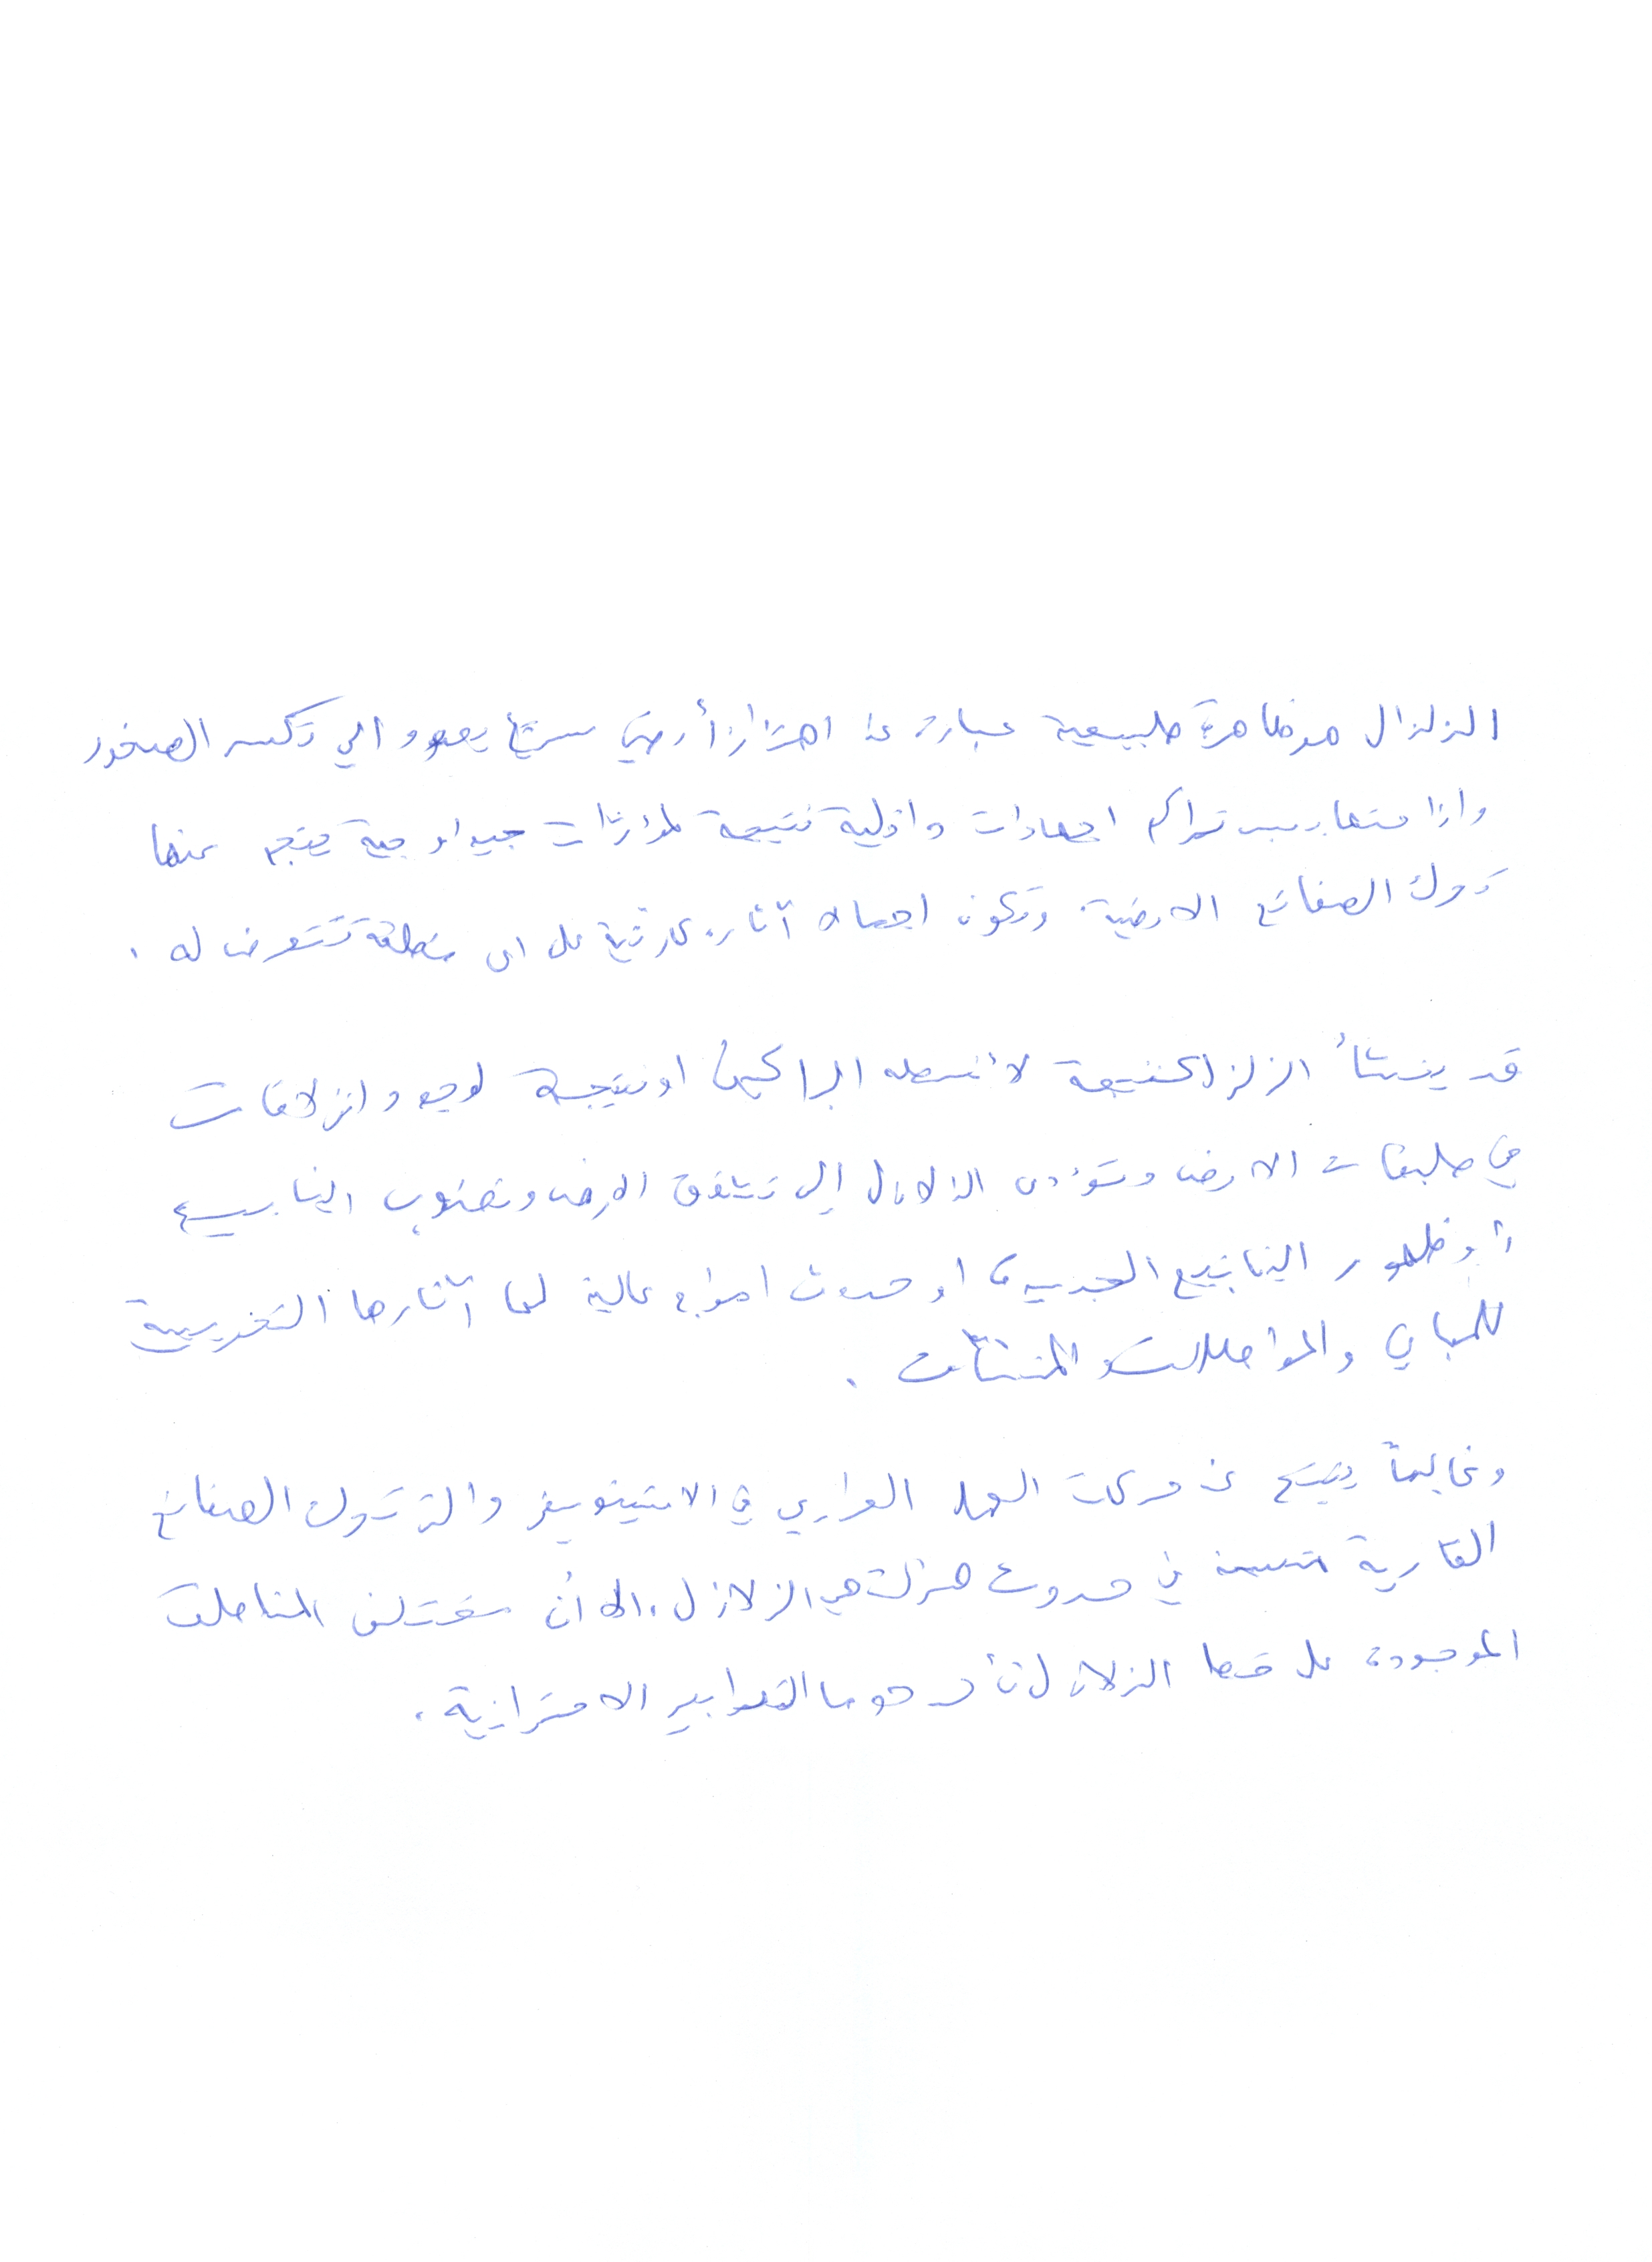 الزلزال هو ظاهرة طبيعية عبارة عن اهتزاز أرضي سريع يعود الي تكسر الصخور
واذا تراكم اجهادات داخلية نتيجة لمؤثرات جيولوجية ينجم عنها
تحرك الصفائح الارضية. وتكون اجمالا آثاره كارثية على اى منطقة تتعرض له .
قد ينشأ الزلزال كنتيجة لأنشطه البراكين او نتيجة لوجود انزلاقات
في طبقات الارض وتؤدى الزلازل إلى تشقق الارض ونضوب الينابيع
أو ظهور الينابيع الجديدة او حدوث امواج عالية لها آثارها التخريبية
للمباني والمواصلات والمنشآت .
وغالبا ينتج عن حركات الحمل الحراري في الاستينوسفير والتي تحرك الصفائح
القارية متسببة في حدوث هزات هي الزلازل. الا أن مختلف المناطق
الموجودة على خط الزلازل تأخذ دوما التدابير الاحترازية.